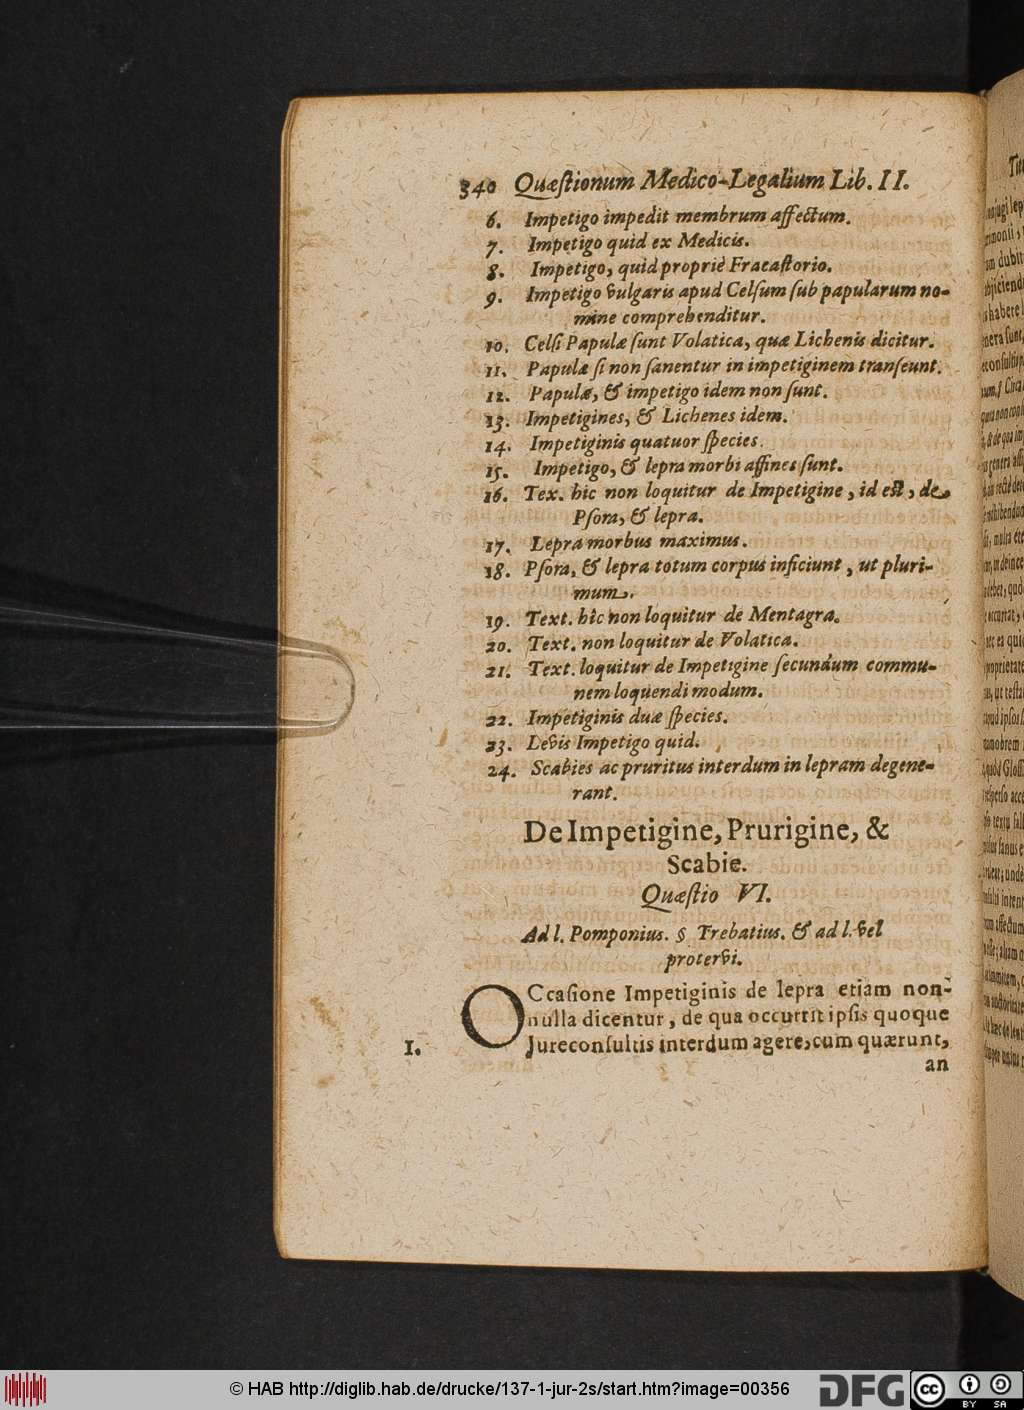 340 Quæſtionum Medico-Legalium Lib. II.
6. Impetigo impedit membrum affectum.
7. Impetigo quid ex Medicis.
8. Impetigo, quid propriè Fracaſtorio.
9. Impetigo vulgaris apud Celſum ſub papularum no-
mine comprehenditur.
10. Celſi Papulæ ſunt Volatica, quæ Lichenis dicitur.
11. Papulæ ſi non ſanentur in impetiginem tranſeunt.
12. Papulæ, & impetigo idem non ſunt.
13. Impetigines, & Lichenes idem.
14. Impetiginis quatuor ſpecies.
15. Impetigo, & lepra morbi affines ſunt.
16. Tex. hic non loquitur de Impetigine, id eſt, de
Pſora, & lepra.
17. Lepra morbus maximus.
18. Pſora, & lepra totum corpus inficiunt, ut pluri-
mum.
19. Text. hîc non loquitur de Mentagra.
20. Text. non loquitur de Volatica.
21. Text. loquitur de Impetigine ſecundum commu-
nem loquendi modum.
22. Impetiginis duæ ſpecies.
23. Levis Impetigo quid.
24. Scabies ac pruritus interdum in lepram degene-
rant.
De Impetigine, Prurigine, &
Scabie.
Quæſtio VI.
Ad l. Pomponius. § Trebatius. & ad l. vel
protervi.
OCcaſione Impetiginis de lepra etiam non-
nulla dicentur, de qua occurrit ipſis quoque
1. Jureconſultis interdum agere, cum quærunt,
an
© HAB http://diglib.hab.de/drucke/137-1-jur-2s/start.htm?image=00356
DFG
cc BY SA